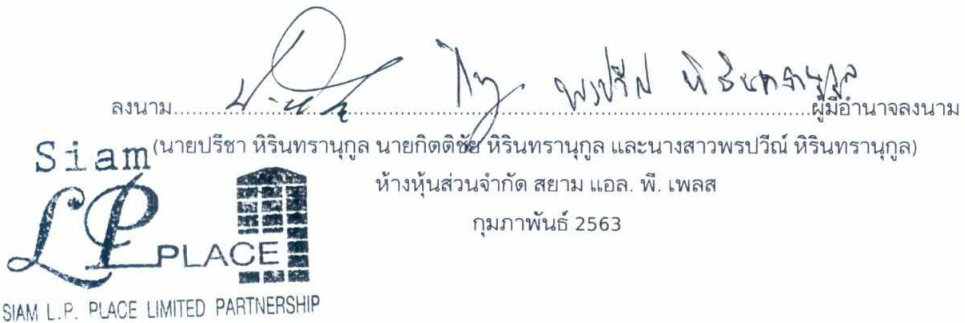 ลงนาม........................................ผู้มีอำนาจลงนาม
(นายปรีชา หิรินทรานุกูล นายกิตติชัย หิรินทรานุกูล และนางสาวพรปวีณ์ หิรินทรานุกูล)
ห้างหุ้นส่วนจำกัด สยาม แอล. พี. เพลส
กุมภาพันธ์ 2563
Siam
LP PLACE
SIAM L.P. PLACE LIMITED PARTNERSHIP